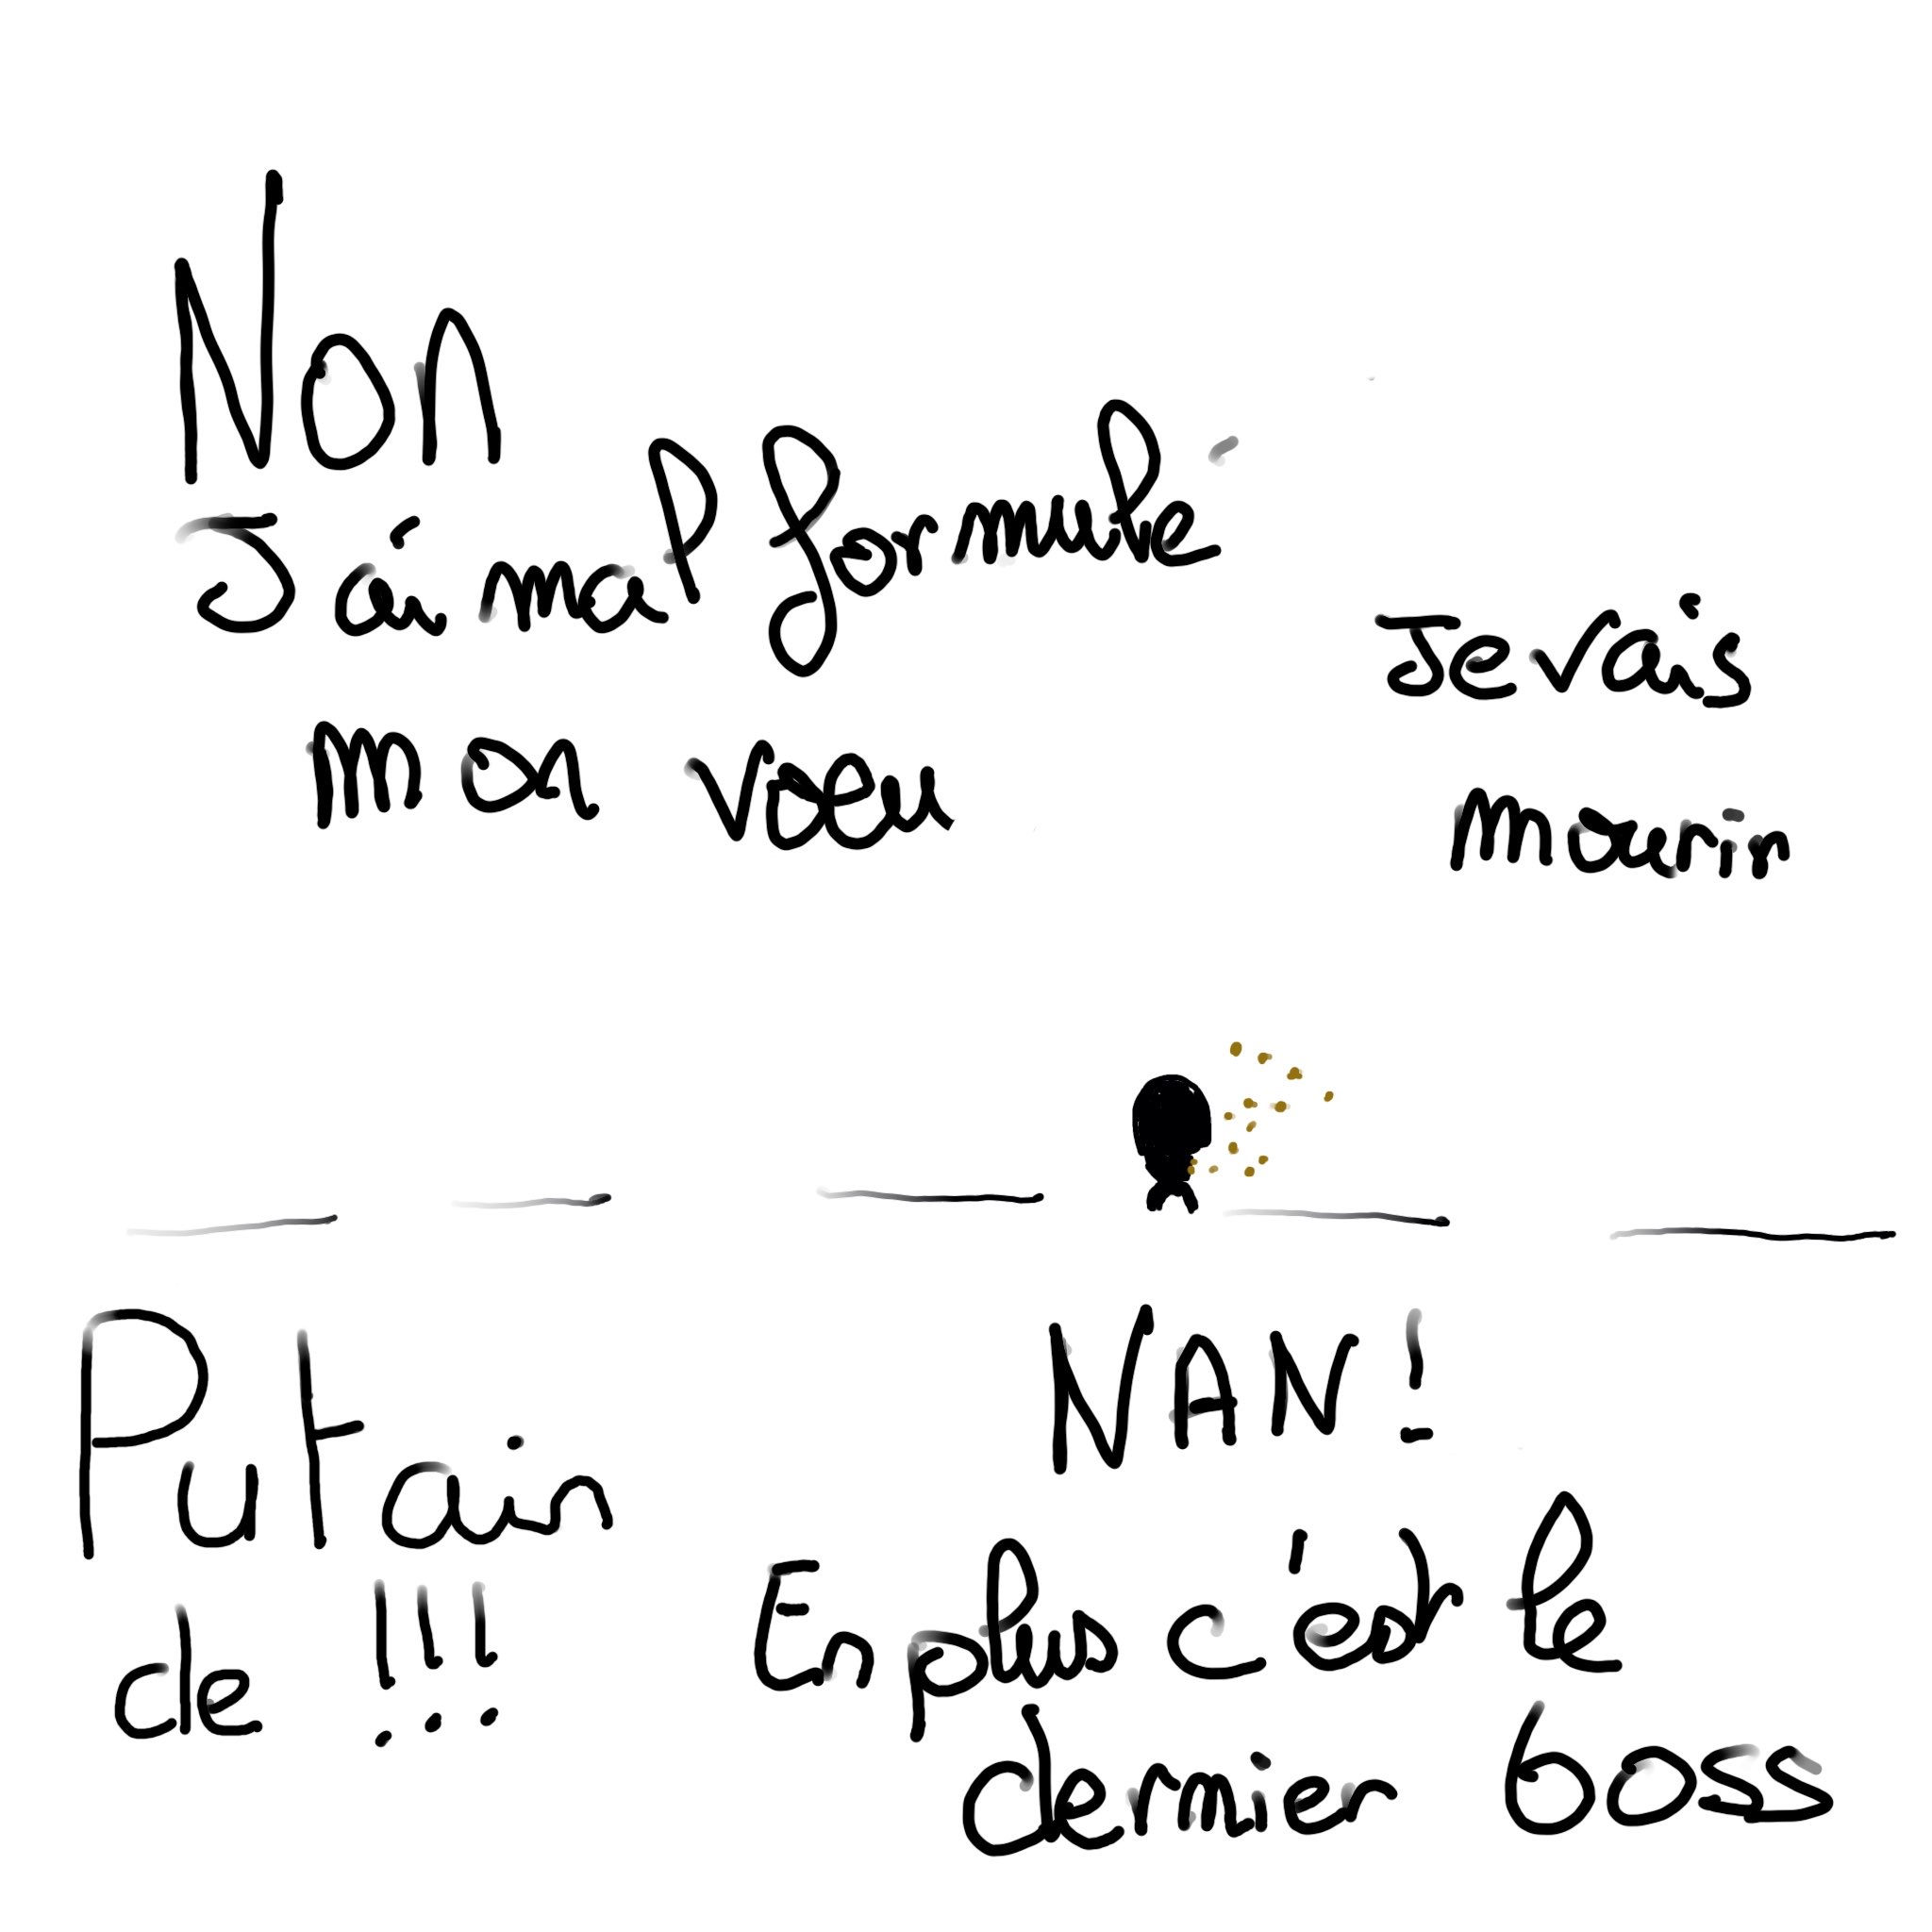 Non
J'ai mal formulé
mon voeu
Je vais
mourir
Putain
de !!!
NAN!
En plus c'est le
dernier boss